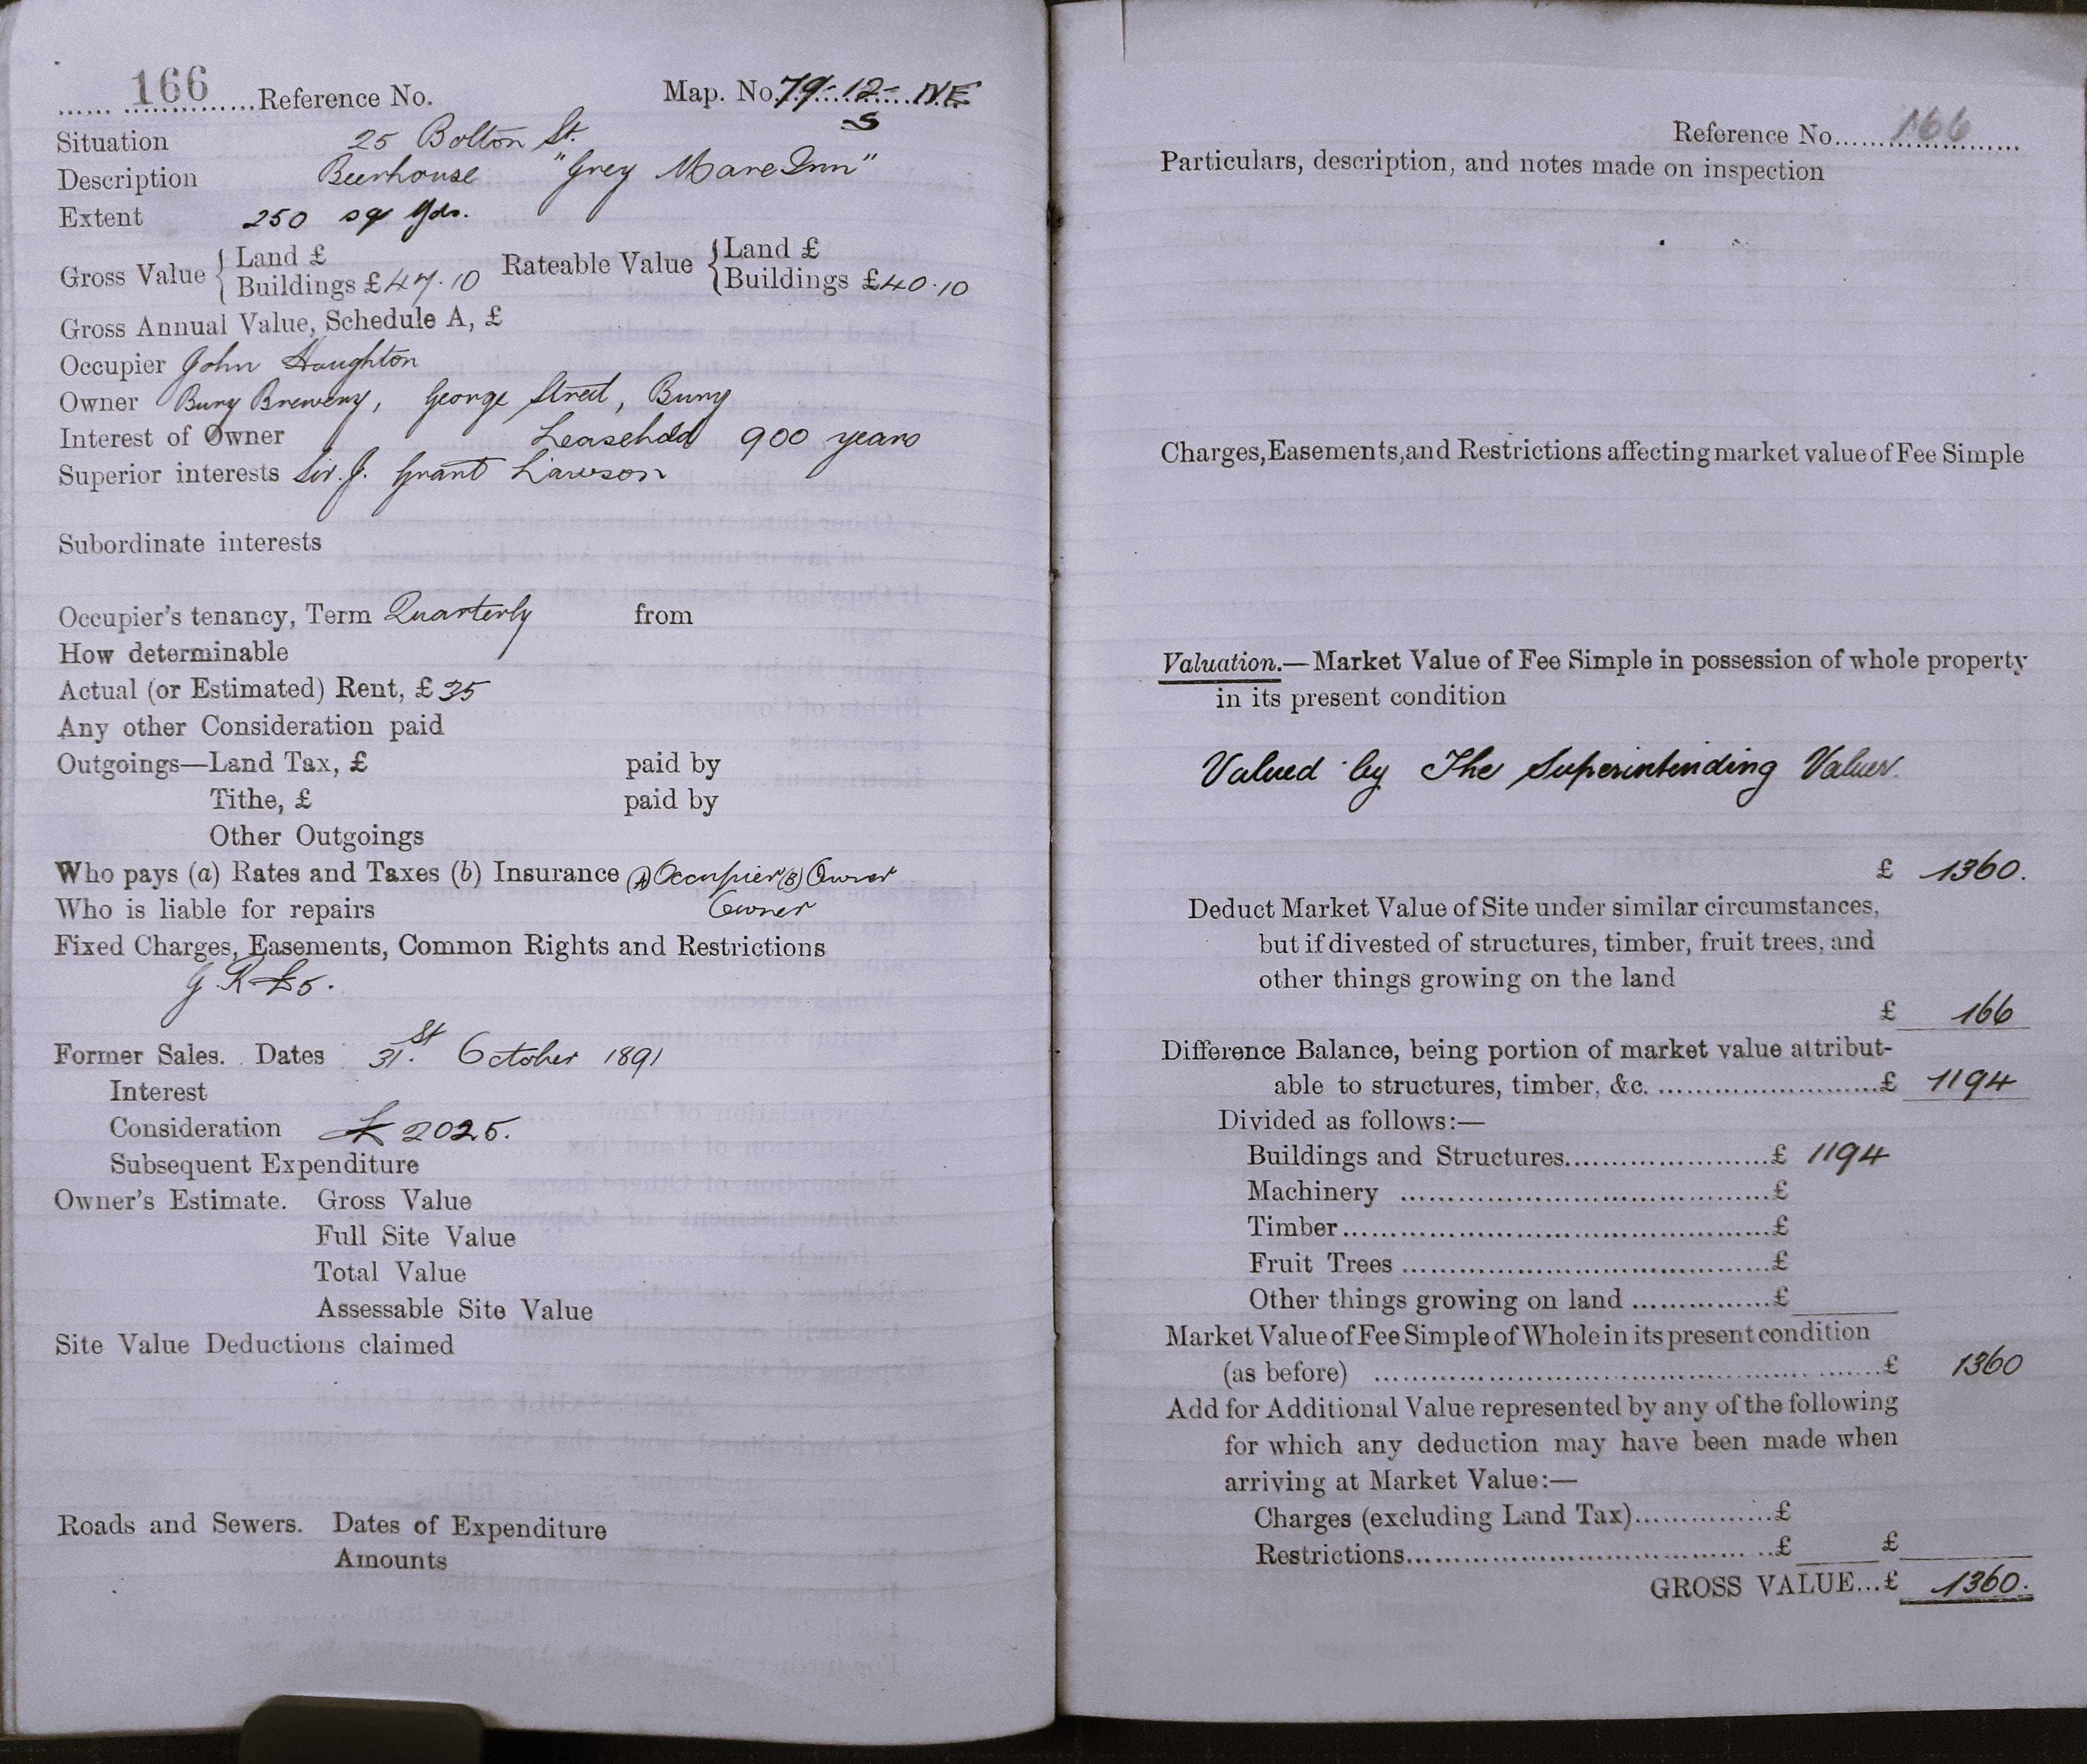 166 Reference No. Map. No. 79-12-NE
S
Situation 25 Bolton St.
Description Beerhouse "Grey Mare Inn"
Extent 250 sq yds.
Gross Value { Land £
Buildings £47.10
Rateable Value { Land £
Buildings £40.10
Gross Annual Value, Schedule A, £
Occupier John Houghton
Owner Bury Brewery, George Street, Bury
Interest of Owner Leasehold 900 years
Superior interests Sir. J. Grant Lawson
Subordinate interests
Occupier's tenancy, Term Quarterly from
How determinable
Actual (or Estimated) Rent, £ 35
Any other Consideration paid
Outgoings—Land Tax, £ paid by
Tithe, £ paid by
Other Outgoings
Who pays (a) Rates and Taxes (b) Insurance (A) Occupier (B) Owner
Who is liable for repairs Owner
Fixed Charges, Easements, Common Rights and Restrictions
G.R £5.
Former Sales. Dates 31st. October 1891
Interest
Consideration £ 2025.
Subsequent Expenditure
Owner's Estimate. Gross Value
Full Site Value
Total Value
Assessable Site Value
Site Value Deductions claimed
Roads and Sewers. Dates of Expenditure
Amounts
Reference No. 166
Particulars, description, and notes made on inspection
Charges, Easements, and Restrictions affecting market value of Fee Simple
Valuation.—Market Value of Fee Simple in possession of whole property
in its present condition
Valued by The Superintending Valuer.
£ 1360.
Deduct Market Value of Site under similar circumstances,
but if divested of structures, timber, fruit trees, and
other things growing on the land
£ 166
Difference Balance, being portion of market value attribut-
able to structures, timber, &c. £ 1194
Divided as follows:—
Buildings and Structures £ 1194
Machinery £
Timber £
Fruit Trees £
Other things growing on land £
Market Value of Fee Simple of Whole in its present condition
(as before) £ 1360
Add for Additional Value represented by any of the following
for which any deduction may have been made when
arriving at Market Value:—
Charges (excluding Land Tax) £
Restrictions £ £
GROSS VALUE... £ 1360.